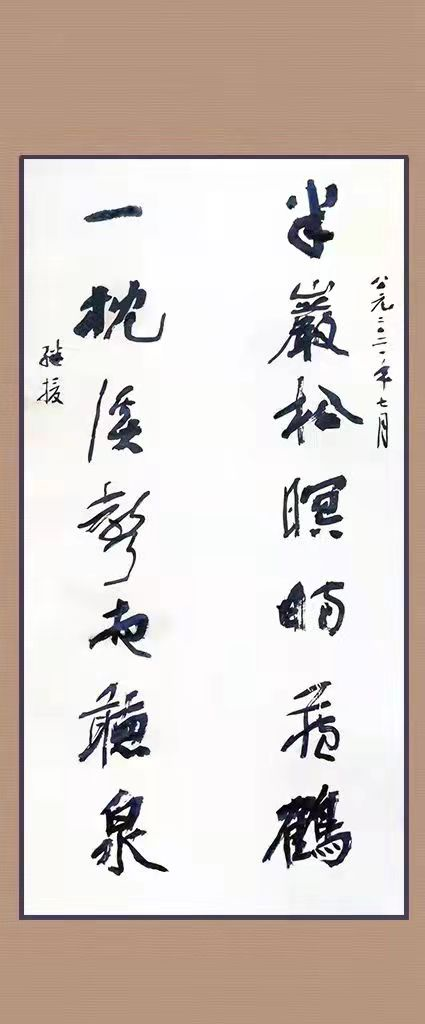 公元二〇二一年七月
半巖松暝時藏鶴
一枕溪聲夜聽泉
继援